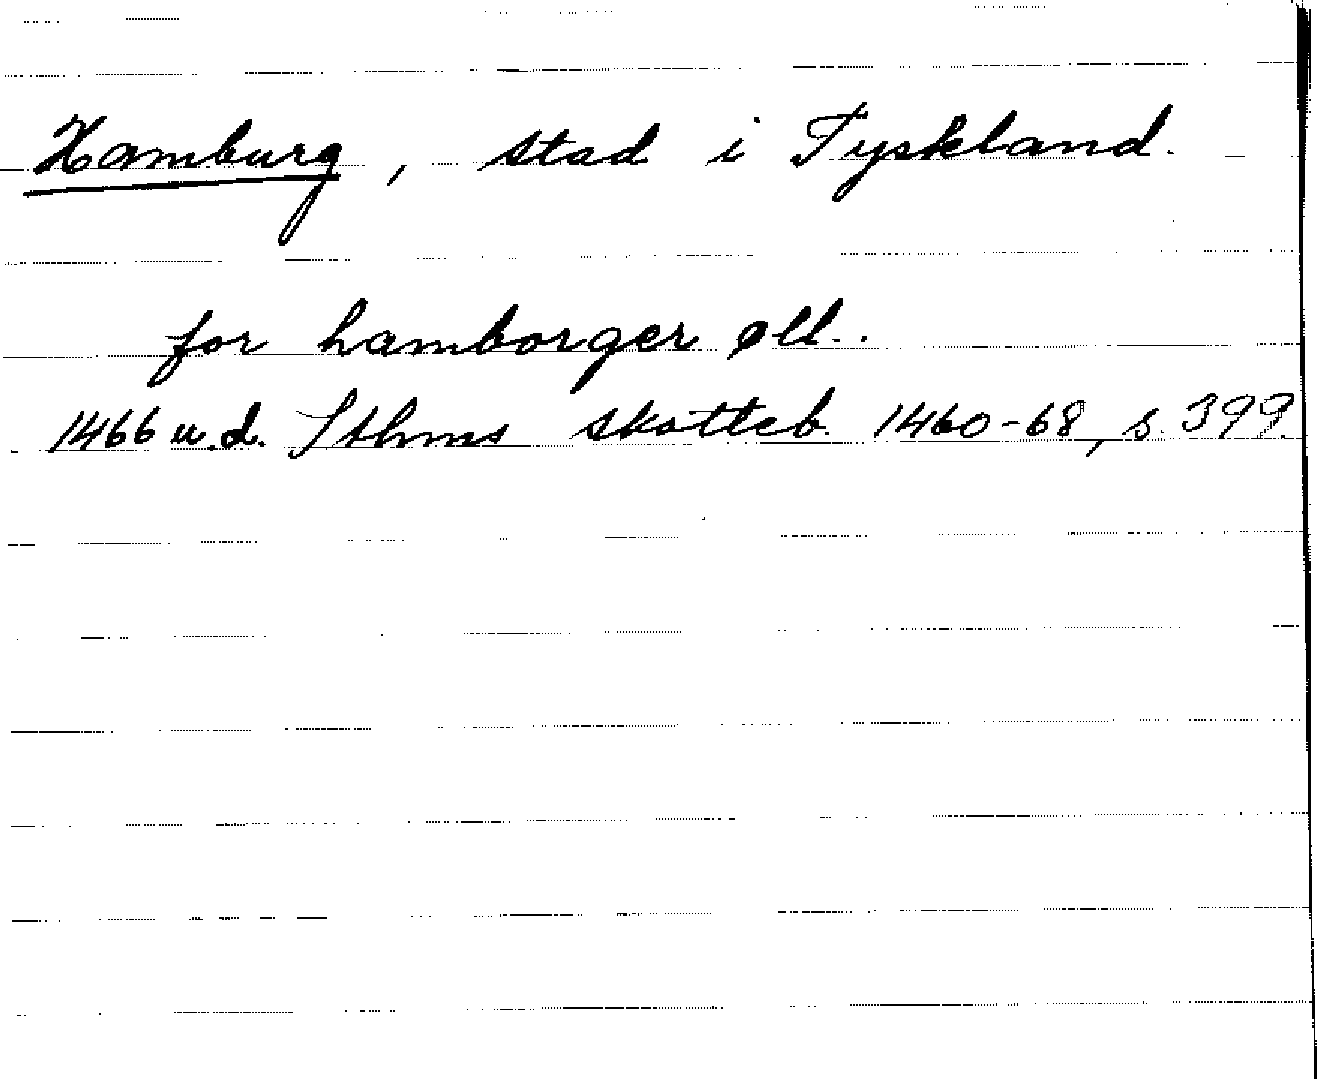 Hamburg, stad i Tyskland.
for hamborger øll..
1466 u.d. Sthms skotteb. 1460-68, s. 399.